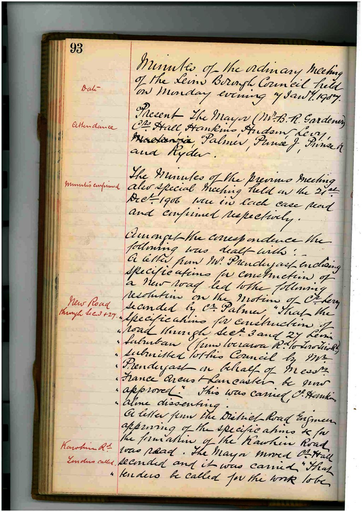 93
Minutes of the ordinary Meeting
of the Levin Borough Council held
on Monday evening 7 Jany. 1907.
Date
Present The Mayor (Mr B. R. Gardener)
Attendance
Crs Hall, Hankins, Hudson, Levy,
Palmer, Prouse J, Prouse R
and Ryder.
The Minutes of the previous Meeting
Minutes confirmed
also special Meeting held on the 21st
Decr. 1906 were in each case read
and confirmed respectively.
Amongst the correspondence the
following was dealt with:
A letter from Mr. Prendergast enclosing
specifications for construction of
a New road led to the following
New Road
resolution on the Motion of Cr Levy
through Secs 3 & 27
seconded by Cr Palmer, "That the
specifications for construction of
road through Secs 3 and 27 Levin
Suburban (from
submitted to this Council by Mr
Prendergast on behalf of Messrs
France and Lancaster be now
approved". This was carried, Cr Hankins
alone dissenting.
A letter from the District Road Engineer
approving of the specifications &c for
the formation of the Kawhiu Road
Kawhiu Rd
was read. The Mayor moved Cr Hall
Tenders called
seconded and it was carried "That
tenders be called for the work to be